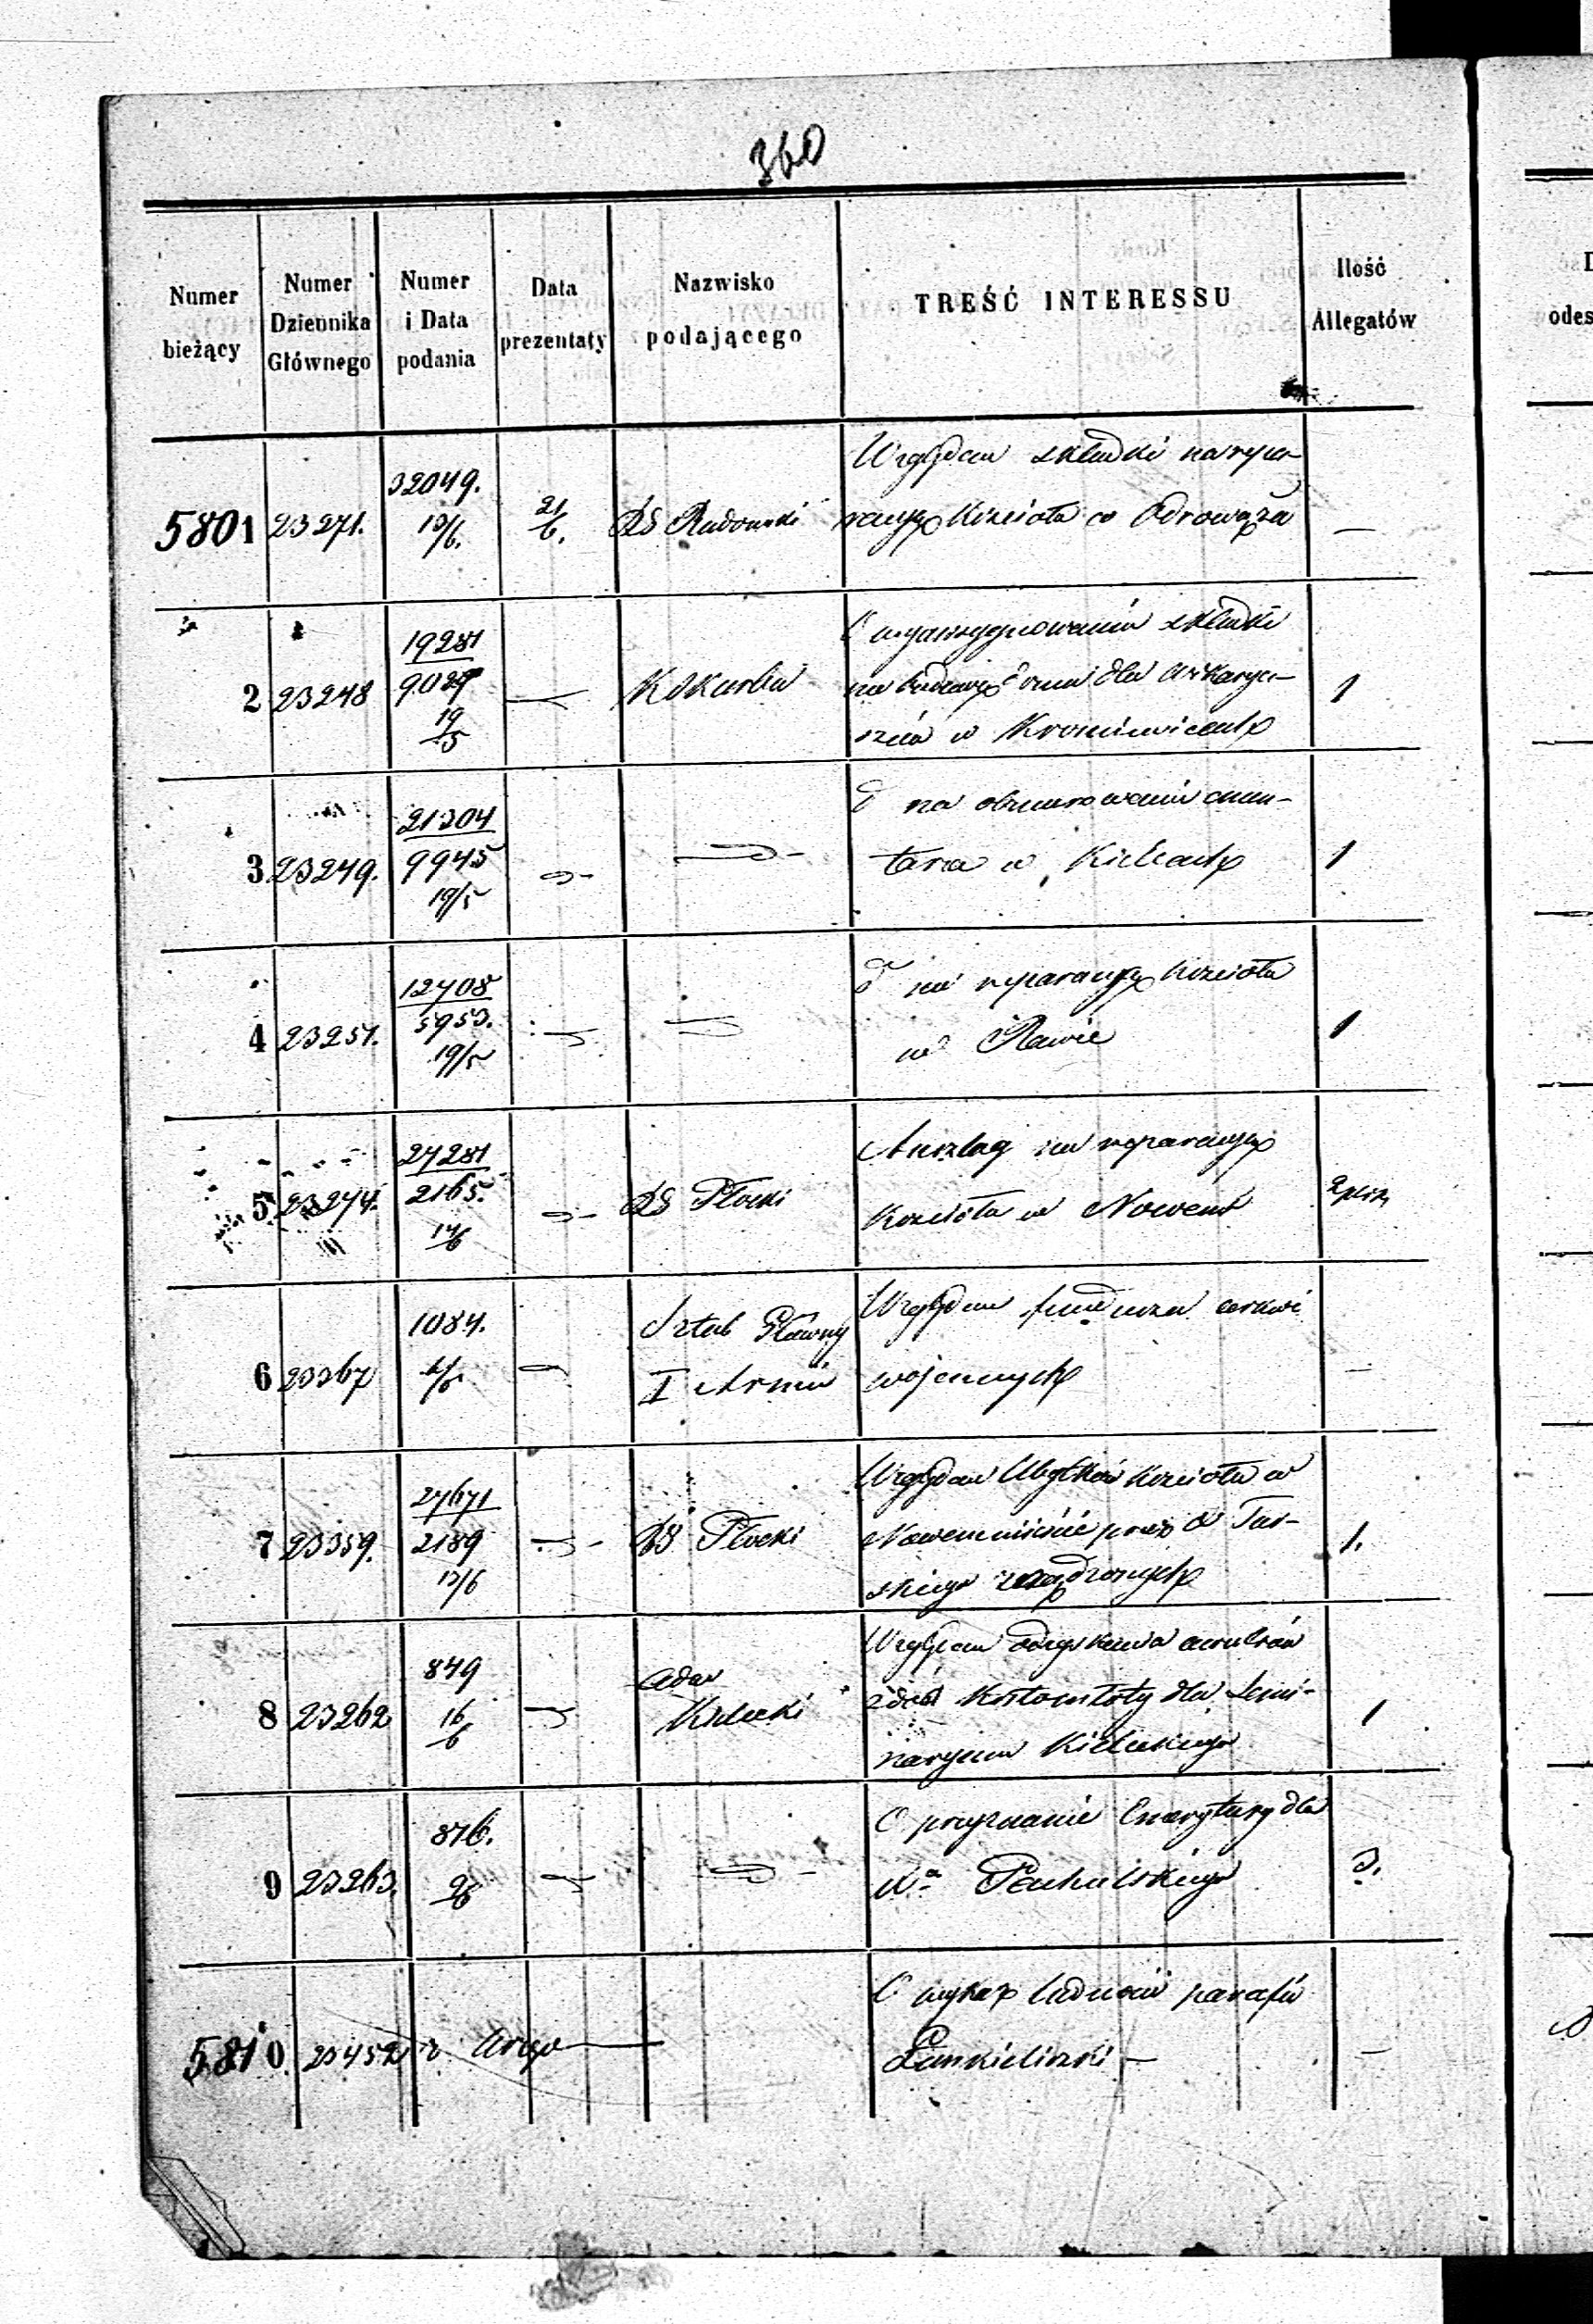 360
Numer bieżący
Numer Dziennika Głównego
Numer i Data podania
Data prezentaty
Nazwisko podającego
TREŚĆ INTERESSU
Ilość Allegatów
5801 23271. 32049. 13/6. 21/6. RG Radomski
Względem składki na repa-
racyę Kościoła w Odrowążu —
2 23248 19281
9029
19/5
O wyassygnowanie składki
na budowę domu dla Wikaryu-
sza w 1
3 23249. 21304
9945
19/5
do na obmurowanie cmen-
tarza w Kielcach 1
4 23251. 12708
5953.
19/5
do na reparacyę Kościoła
w Rawie 1
5 23274. 24281
2165.
14/6
RG Płocki
Anszlag na reparacyę
Kościoła w Nowem
6 23367 1084.
Sztab Główny
I Armii
Względem funduszu cerkwi
wojennych —
7 23359. 27671
2189
13/6
RG Płocki
Względem Ubytków Kościoła w
Nowemmieście przez
zrządzonych 1.
8 23262 849
16/6
Adm
Kielecki
Względem odzyskania
z dóbr Kostomłoty dla Semi-
naryum Kieleckiego 1
9 23263. 876.
O przyznanie Emerytury dla
Xa Pachulskiego 3.
5810 23452
O wykaz ludności parafii
Pankieliszki — —